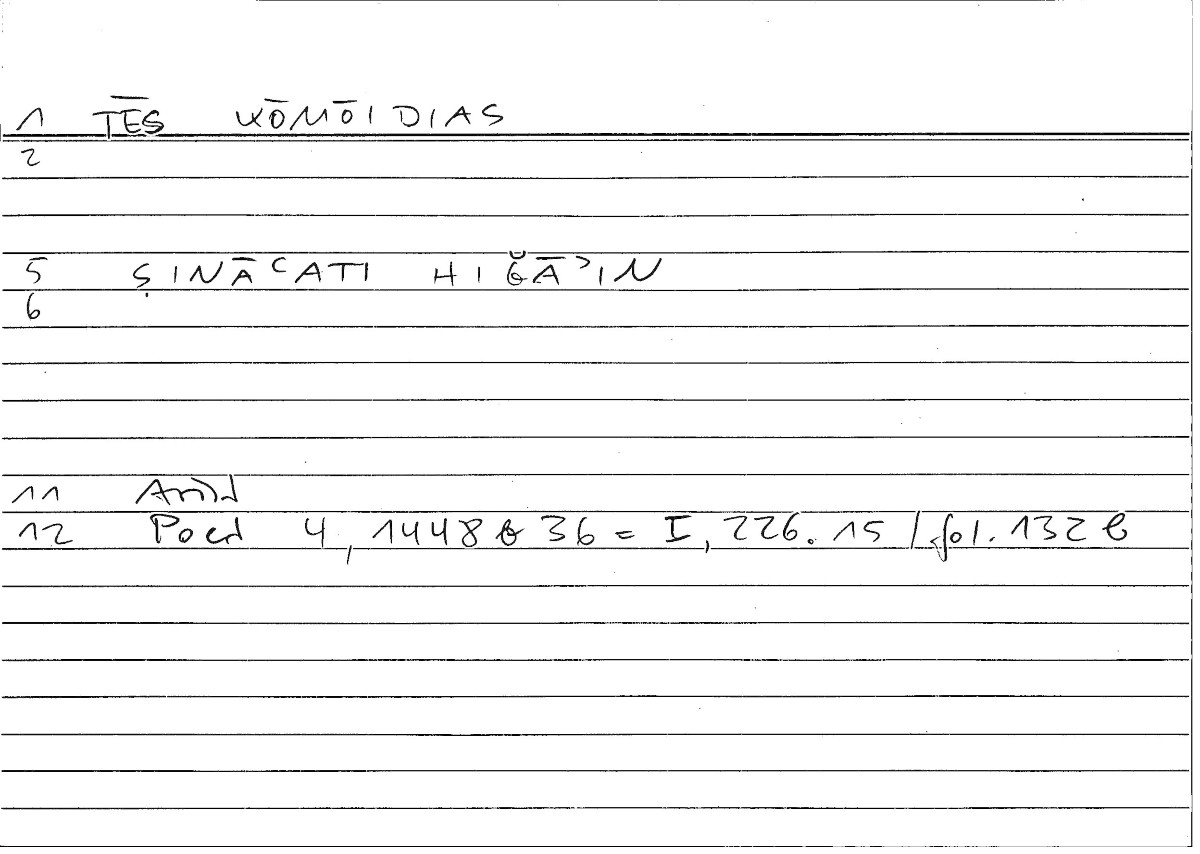 1 TĒS KŌMŌIDIAS
2
5 ṢINĀʿATI HIǦĀʾIN
6
11 Arist
12 Poet 4, 1448b36 = I, 226.15 / fol. 132b